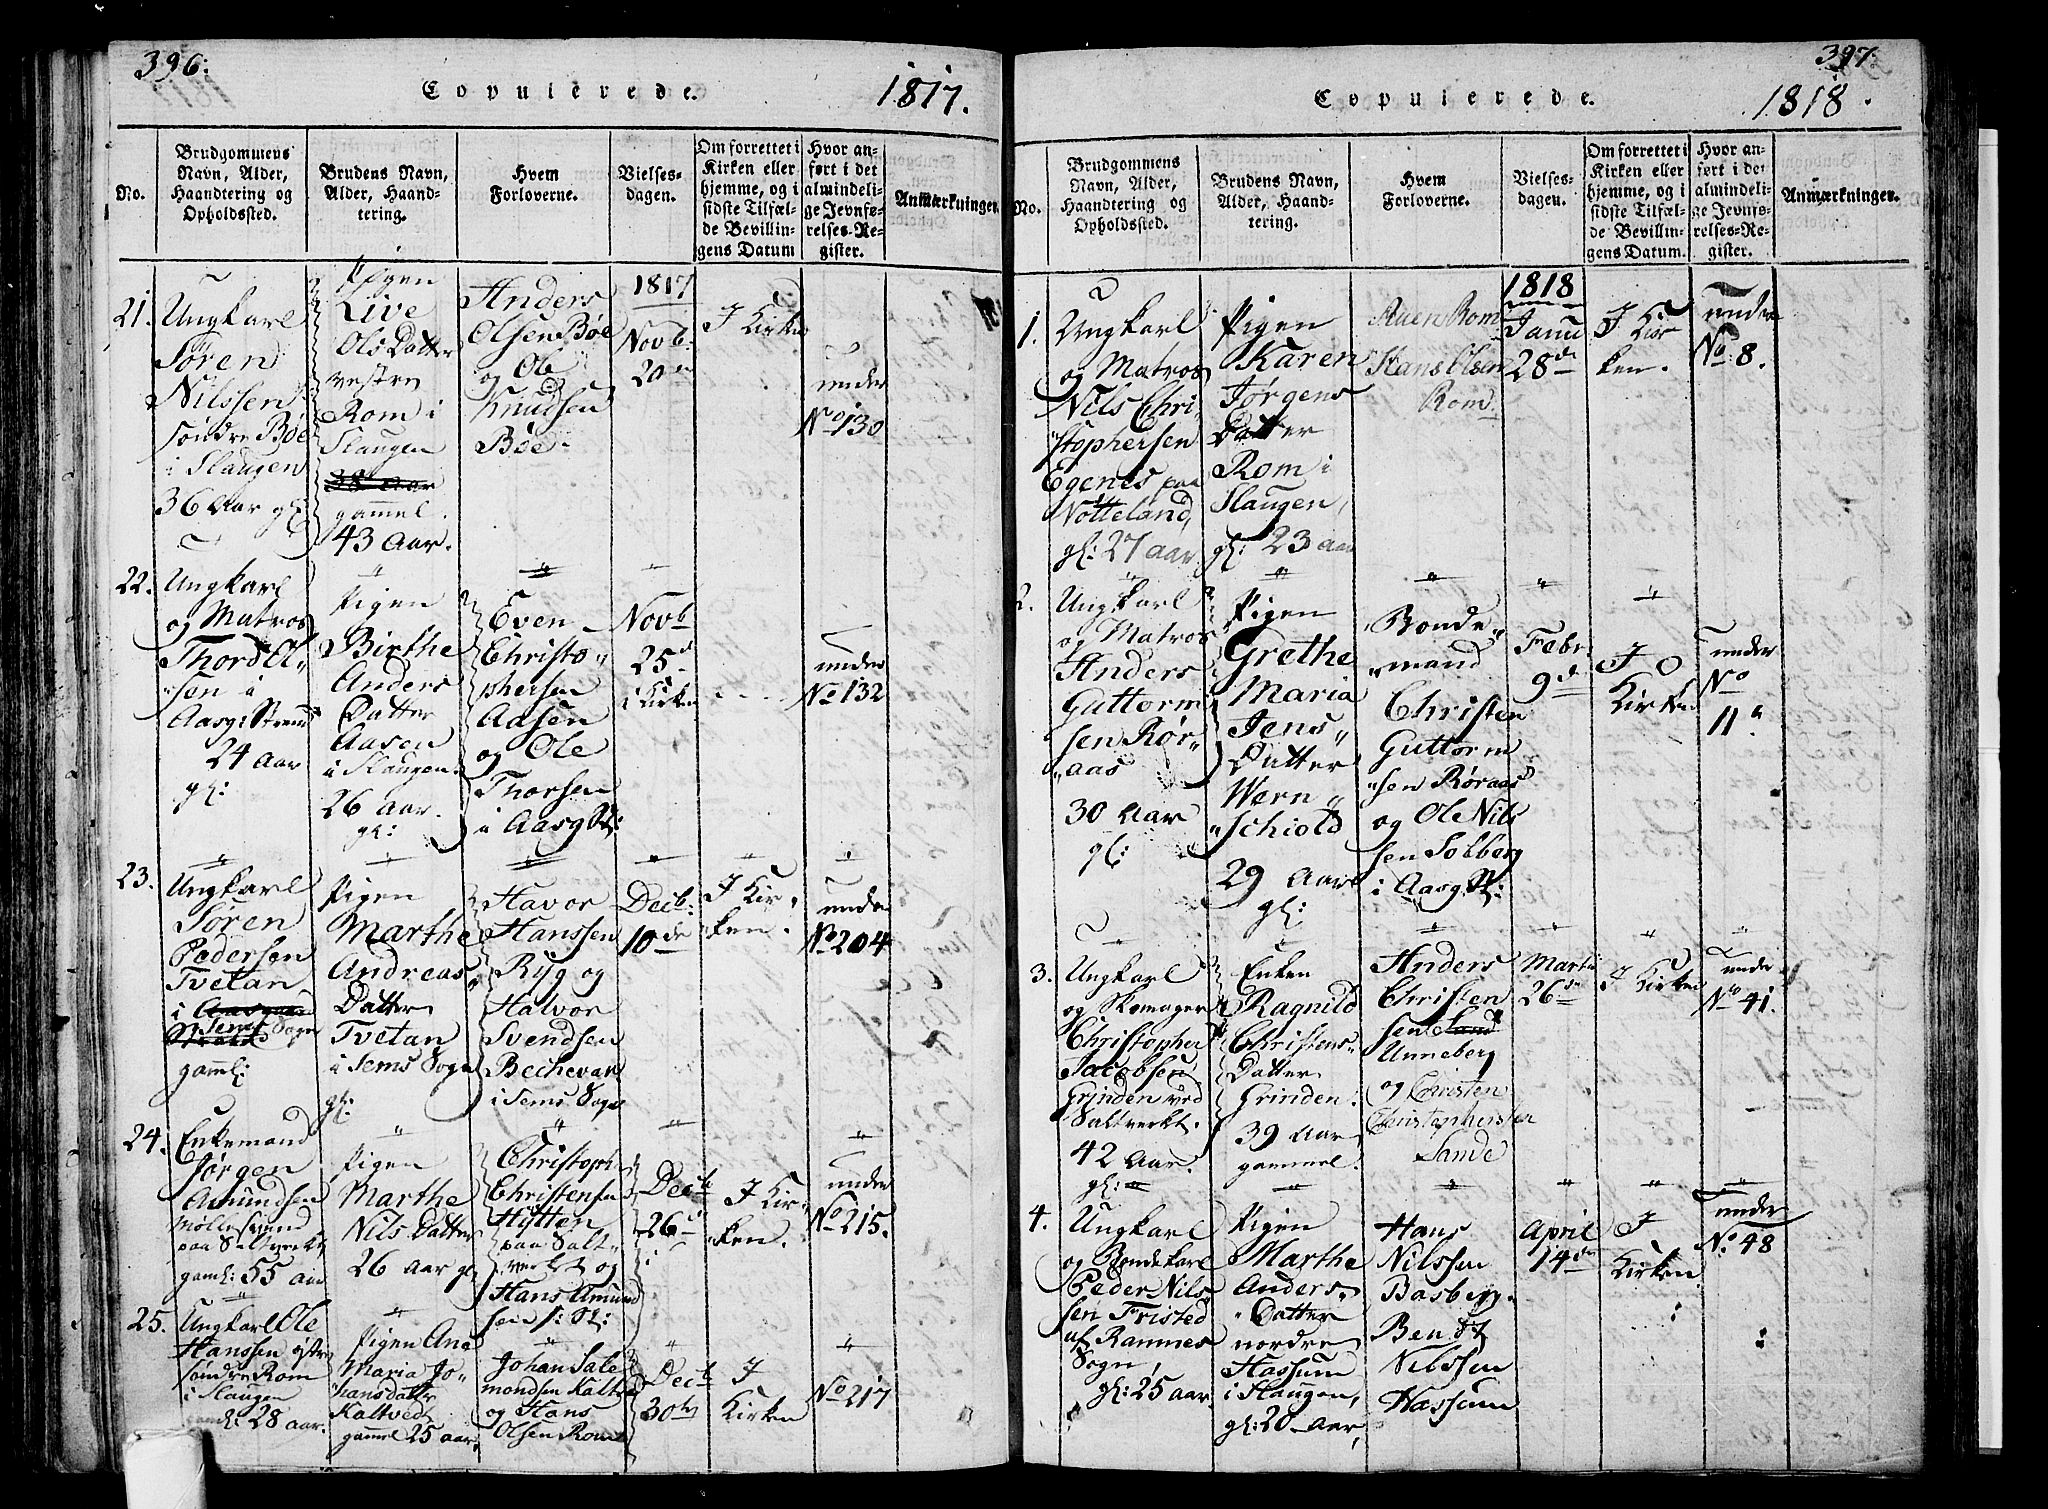 396.
Copulerede.
1817.
No.
Brudgommens
Navn, Alder,
Haandtering og
Opholdssted.
Brudens Navn,
Alder, Haand-
tering.
Hvem
Forloverne.
Vielses-
dagen.
Om forrettet i
Kirken eller
hjemme, og i
sidste Tilfæl-
de Bevillin-
gens Datum
Hvor an-
ført i det
almindeli-
ge Jevnfø-
relses-Re-
gister.
Anmærkninger.
21.
Ungkarl
Søren
Nilssen
søndre Bøe
i Slaugen
36 Aar gl:
Pigen
Live
Ols Datter
vestre
Rom i
Slaugen
38 Aar
gammel.
43 Aar.
Anders
Olsen Bøe
og Ole
Knudsen
Bøe.
1817
Novb:
20de
I Kirken
under
No 130
22.
Ungkarl
og Matros
Thord Ol„
„sen i
Aasg: Strand
24 Aar
gl:
Pigen
Birthe
Anders
Datter
Aasen
i Slaugen.
26 Aar.
gl:
Even
Christo„
phersen
Aasen
og Ole
Thorsen
i Aasg St:
Novb
25d
i Kirken
under
No 132
23.
Ungkarl
Søren
Pedersen
Tvetan
i
Sems Sogn
gaml:
Pigen
Marthe
Andreas
Datter
Tvetan
i Sems Sogn
gl:
Havor
Hanssen
Ryg og
Halvor
Svendsen
Bechevar
i Sems Sogn
Decb:
10de
I Kir„
ken.
under
No 204
24.
Enkemand
Jørgen
Amundsen
Møllesvend
paa Saltverket
gaml: 55 aar
Pigen
Marthe
Nils Datter
26 Aar gl
Christoph
Christensen
Hytten
paa Salt„
verket og
Hans Amund
sen
Decb
26
I Kir„
ken.
under
No 215.
25.
Ungkarl Ole
Hanssen østre
søndre Rom
i Slaugen
gl: 28 aar.
Pigen Ana
Maria Jo„
hansdatter
Kaltved
gammel 25 aar,
Johan Sale
mondsen Kaltved
og Hans
Olsen Rom
Decb
30te
I
Kirken
No 217
397.
Copulerede.
1818.
No.
Brudgommens
Navn, Alder,
Haandtering og
Opholdssted.
Brudens Navn,
Alder, Haand-
tering.
Hvem
Forloverne.
Vielses-
dagen.
Om forrettet i
Kirken eller
hjemme, og i
sidste Tilfæl-
de Bevillin-
gens Datum.
Hvor an-
ført i det
almindeli-
ge Jevnfø-
relses-Re-
gister.
Anmærkninger.
1.
Ungkarl
og Matros
Nils Chri„
„stophersen
Egenes paa
Nøtteland,
gl: 27 aar
Pigen
Karen
Jørgens
Datter
Rom i
Slaugen,
gl: 23 aar
Rom
Hans Olsen
Rom.
1818
Janu
28de
I Kir
ken.
under
No 8.
2.
Ungkarl
og Matros
Anders
Guttorm
sen Rør„
„aas
30 Aar
gl:
Pigen
Grethe
Maria
Jens„
Datter
Wern„
„schiold
29 Aar
gl:
„Bonde„
„mand
Christen
Guttorm
„sen Røraas
og Ole Nils
sen Solberg
i Aasg St:
Febr:
9de
I
Kirken
under
No
11.
3.
Ungkarl
og Skomager
Christopher
Jacobsen
Grinden ved
Saltverket.
42 Aar.
gl:
Enken
Ragnild
Christens„
Datter
Grinden.
39 Aar
gammel.
Anders
Christen
sen Sand
Unneberg
og Christen
Christophersen
Sande
Marti
26de
I Kirken
under
No 41.
4.
Ungkarl
og Bondekarl
Peder Nils„
sen Fristed
af Ramnes
Sogn,
gl: 25 aar
Pigen
Marthe
Anders„
„Datter
nordre
Hassum
i Slaugen,
gl: 20 Aar,
Hans
Nilssen
Basberg.
Bendt
Nilssen
Hassum
April
14de
I
Kirken
under
No. 48